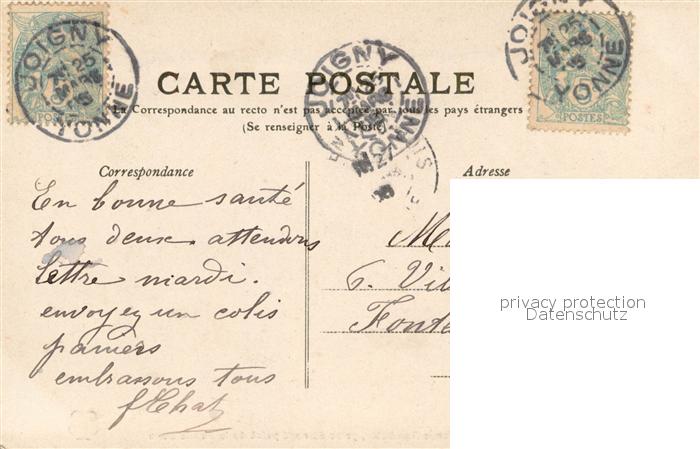 JOIGNY
25
YONNE
POSTES
JOIGNY
YONNE
JOIGNY
25
YONNE
POSTES
CARTE POSTALE
La Correspondance au recto n'est pas acceptée par tous les pays étrangers
(Se renseigner à la Poste)
Correspondance
Adresse
En bonne santé
tous deux. attendons
lettre mardi.
envoyez un colis
paniers
embrassons tous
6. Vil
Fonte
privacy protection
Datenschutz